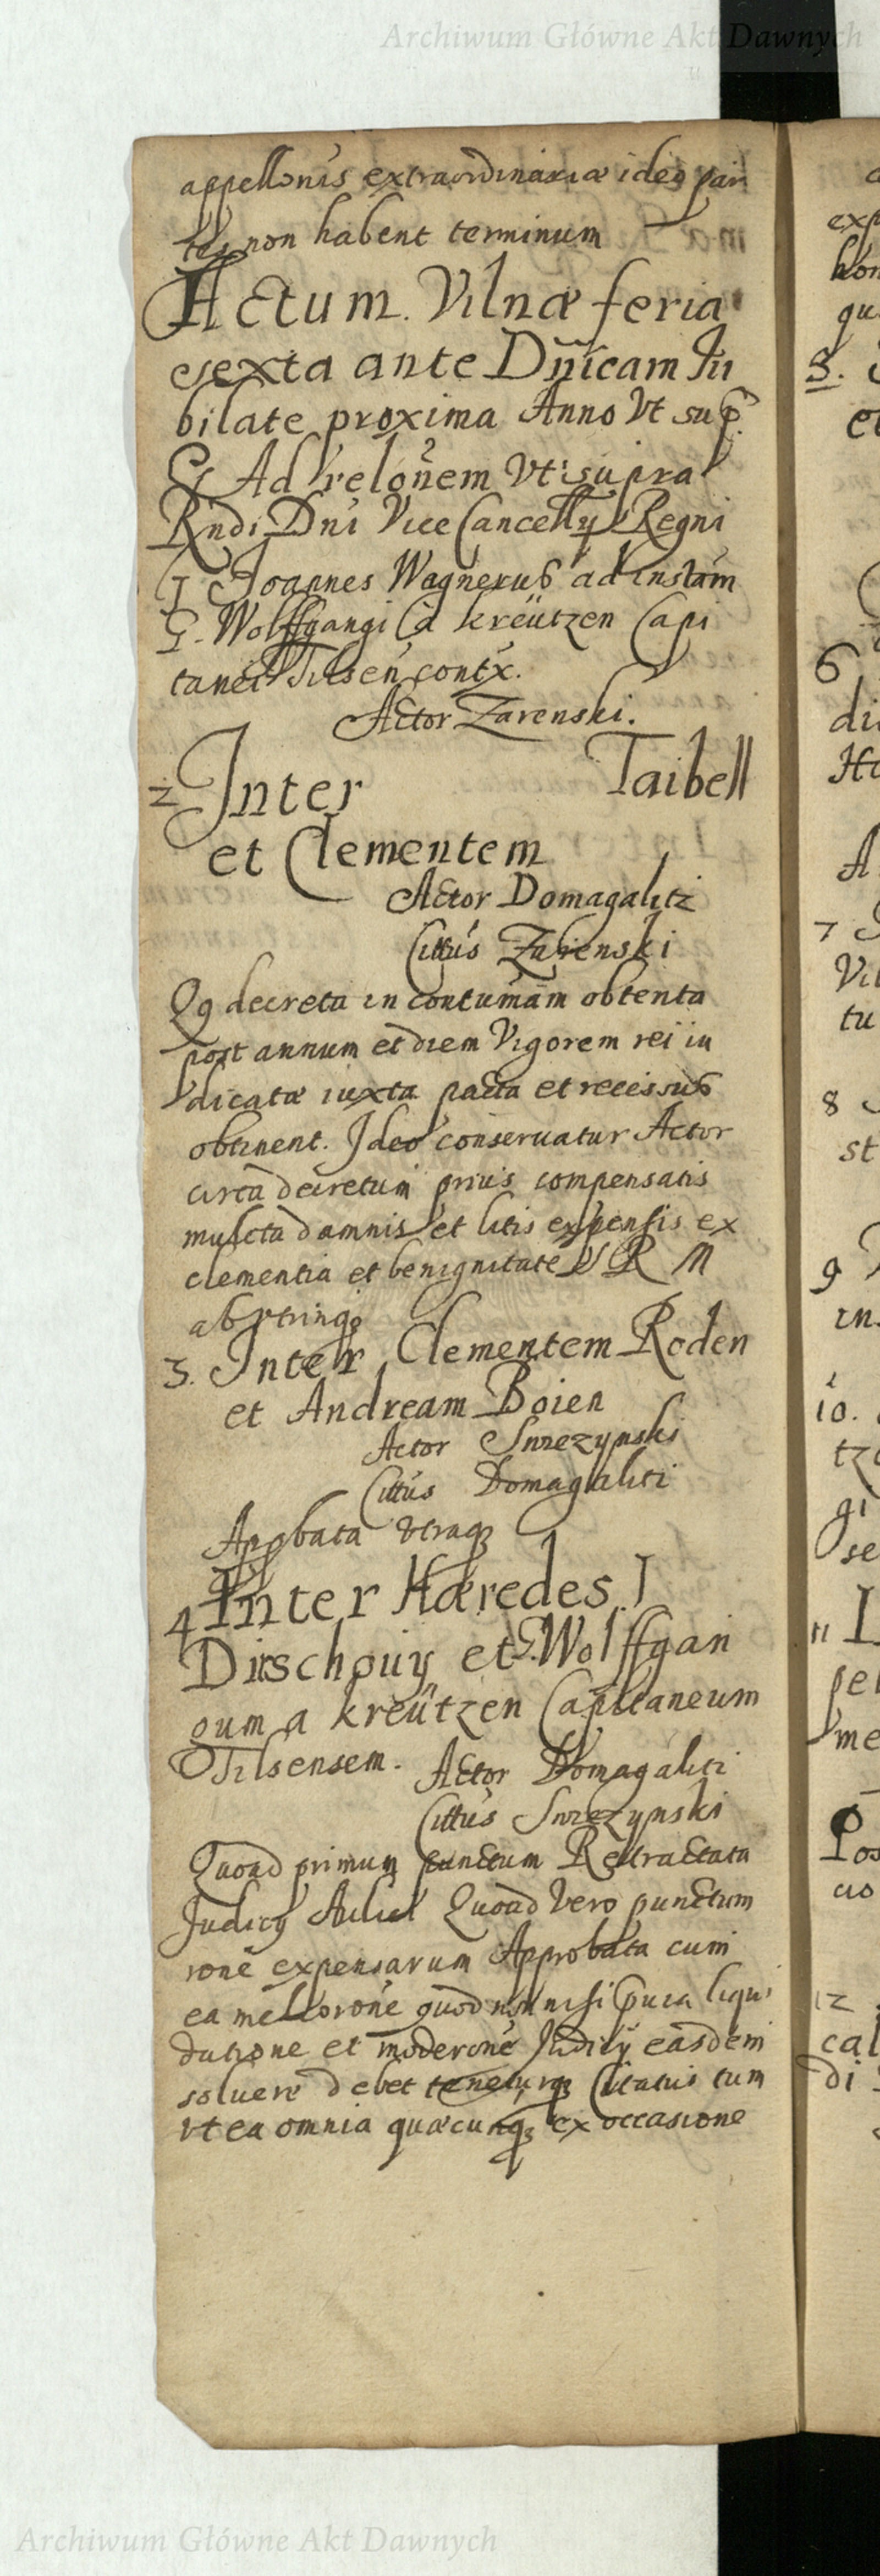 Archiwum Główne Akt Dawnych
appellōnis extraordinariæ ideo par
tes non habent terminum
Actum. Vilnæ feria
sexta ante Dnicam Iu
bilate proxima Anno Vt sup.
Ad relonem Vt supra
Rndi Dni Vice Cancellÿ Regni
1 Joannes Wagnerus ad instam
G. Wolffgangi a kreützen Capi
tanei Tilsen contx.
Actor Zarenski.
2 Inter Taibell
et Clementem
Actor Domagalitz
Cittus Zarenski
Qq decreta in contumām obtenta
post annum et diem Vigorem rei iu
dicatæ iuxta pacta et recessus
obtinent. Ideo conservatur Actor
circa decretum prius compensatis
mulcta damnis et litis expensis ex
clementia et benignitate S R M
ab vtrinq3
3. Inter Clementem Roden
et Andream Boien
Actor Snrezynski
Cittus Domagaliti
Approbata vtraq3
4 Inter Hæredes
Dirschouÿ et G. Wolffgan
gum a kreützen Capitaneum
Tilsensem. Actor Domagaliti
Cittus Snrezynski
Quoad primum punctum Retractata
Judicÿ Aulici Quoad Vero punctum
rone expensarum Approbata cum
ea meliorone quod non nisi liqui
datione et moderone Judicÿ easdem
soluere debet teneturq3 Citatus tum
vt ea omnia quæcunq3 ex occasione
a
exp
hon
qu
5.
et
6
di
Ha
A
7
Vil
tu
8
st
9
in
10.
tz
gi
se
11 I
pel
me
Pos
cio
12
cal
di
Archiwum Główne Akt Dawnych